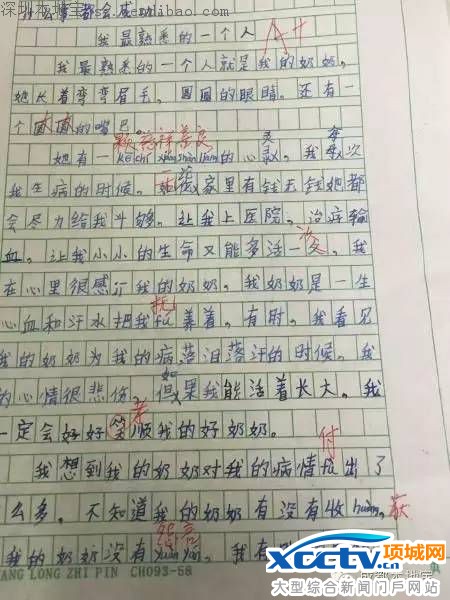 深圳本地宝sz.bendibao.com
什么事都会成功
我最熟悉的一个人 A+
我最熟悉的一个人就是我的奶奶。
她长着弯弯眉毛。圆圆的眼睛。还有一
个大大的嘴巴。
颗慈祥善良 灵 每
她有一 kē cí xiáng shàn liáng 的心灵。我每次
我生病的时候。 家里有钱无钱她都
会尽力给我斗够。让我上医院。治病输
血。让我小小的生命又能多活一 。我
次
在心里很感讠我的奶奶。我奶奶是一生
抚
心血和汗水把我fǔ养着。有时。我看见
我的奶奶为我的病落泪落汗的时候。我
如
的心情很悲伤。 果我能活着长大。我
孝
一定会好好笑顺我的好奶奶。
付
我想到我的奶奶对我的病情fù出了
么多。不知道我的奶奶有没有收huò。获
怨言
我的奶奶没有yuàn yán。我有
ANG LONG ZHI PIN CH093-58
XCCTV.cn项城网
大型综合新闻门戶网站